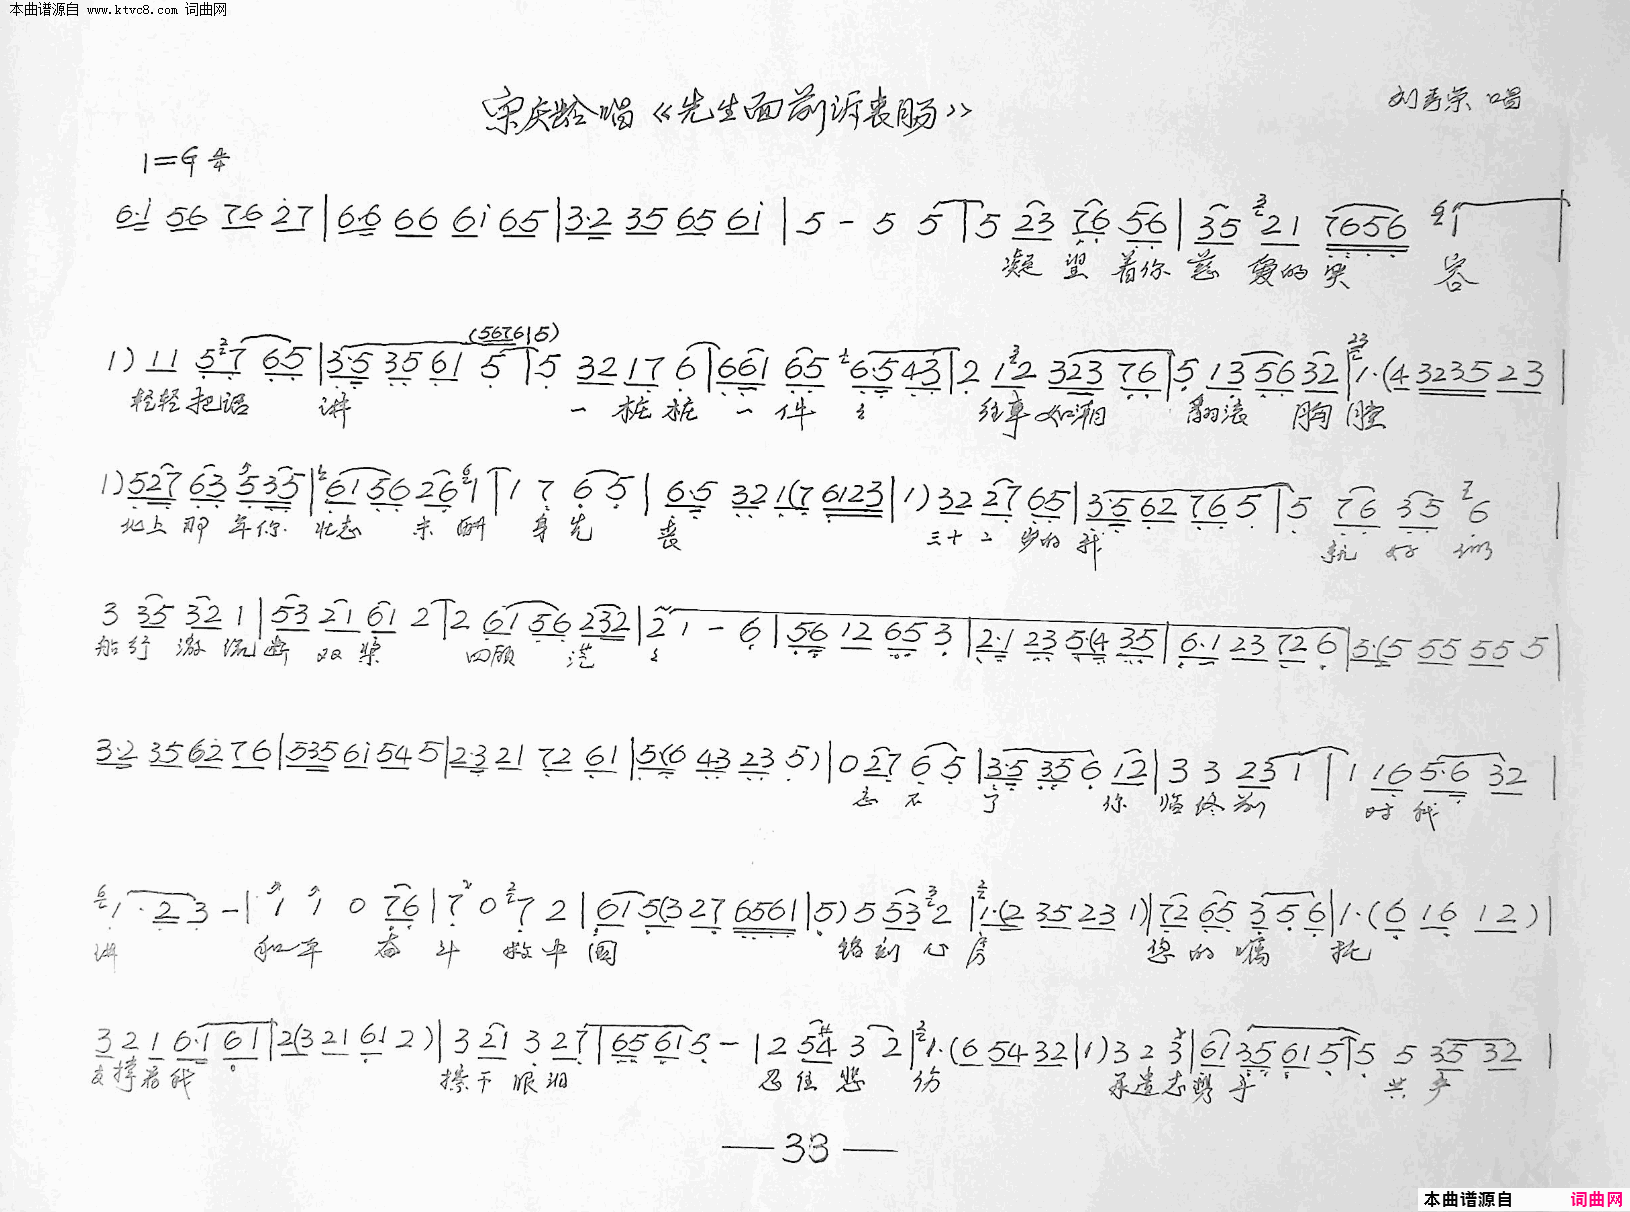 本曲谱源自 www.ktvc8.com 词曲网
宋庆龄唱《先生面前诉衷肠》
刘秀荣 唱
1=G 4/4
6·i 56 76 27 | 6·6 66 6i 65 | 3·2 35 65 6i | 5 - 5 5 | 5 23 76 56 | 35 21 7656 1 |
凝望着你慈爱的笑容
1) 11 527 65 | 3·5 3561 5 | 5 32 17 6 | 661 65 6·543 | 2 12 323 76 | 5 135632 | 1·(4 3235 23 |
(5676 | 5)
轻轻把话讲 一桩桩一件々 往事如潮翻滚胸膛
1) 527 63 535 | 6156 261 | 1 7 6 5 | 6·5 321(7 6123 | 1) 32 27 65 | 3·5 62 76 5 | 5 76 35 6 |
北上那年你壮志未酬身先丧 三十二岁的我就好似
3 35 32 1 | 53 21 61 2 | 2 6156 232 | 21 - 6 | 5·6 12 65 3 | 2·1 23 5·(4 35 | 6·1 23 72 6 | 5·(5 55 55 5 |
船行激流断双桨 四顾茫々
3·2 35 62 76 | 535 6i 54 5 | 2·3 21 72 61 | 5(6 43 23 5) | 0 27 6 5 | 3·5 35 6 12 | 3 3 23 1 | 1 16 5·6 32 |
忘不了你临终前 对我
1· 2 3 - | 1 1 0 76 | 7 0 7 2 | 61 5(3 27 6561 | 5) 5 53 2 | 1·(2 35 23 1) | 72 65 3 5 6 | 1·(6 16 12) |
讲 和平奋斗救中国 铭刻心房 您的嘱托
3 2 1 6·1 61 | 2(321 61 2) | 3 21 3 27 | 65 61 5 - | 2 54 3 2 | 1·(6 54 32 | 1) 3 2 3 | 61 35 61 5 | 5 5 35 32 |
支撑着我 擦干眼泪 忍住悲伤 承遗志携手共产
— 33 —
本曲谱源自 词曲网